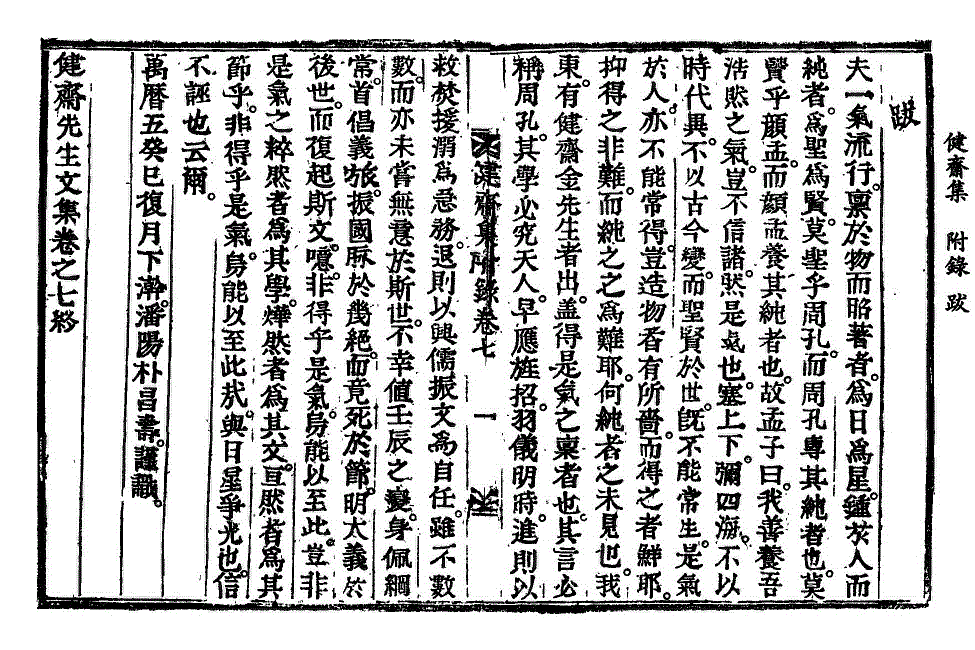 健齋集　附錄　跋
跋
夫一氣流行。禀於物而昭著者。爲日爲星。鍾於人而
純者。爲聖爲賢。莫聖乎周孔。而周孔專其純者也。莫
賢乎顏孟。而顏孟養其純者也。故孟子曰。我善養吾
浩然之氣。豈不信諸。然是氣也。塞上下。彌四海。不以
時代異。不以古今變。而聖賢於世。旣不能常生。是氣
於人。亦不能常得。豈造物者有所嗇。而得之者鮮耶。
抑得之非難。而純之之爲難耶。何純者之未見也。我
東。有健齋金先生者出。盖得是氣之禀者也。其言必
稱周孔。其學必究天人。早應旌招。羽儀明時。進則以
健齋集附錄卷七　一
救焚援溺爲急務。退則以興儒振文爲自任。雖不數
數。而亦未嘗無意於斯世。不幸値壬辰之變。身佩綱
常。首倡義旅。振國脉於幾絶。而竟死於節。明大義於
後世。而復起斯文。噫。非得乎是氣。曷能以至此。豈非
是氣之粹然者爲其學。燁然者爲其文。亘然者爲其
節乎。非得乎是氣。曷能以至此㢤。與日星爭光也。信
不誣也云爾。
萬曆五癸巳復月下澣。潘陽朴昌壽。謹識。
健齋先生文集卷之七終